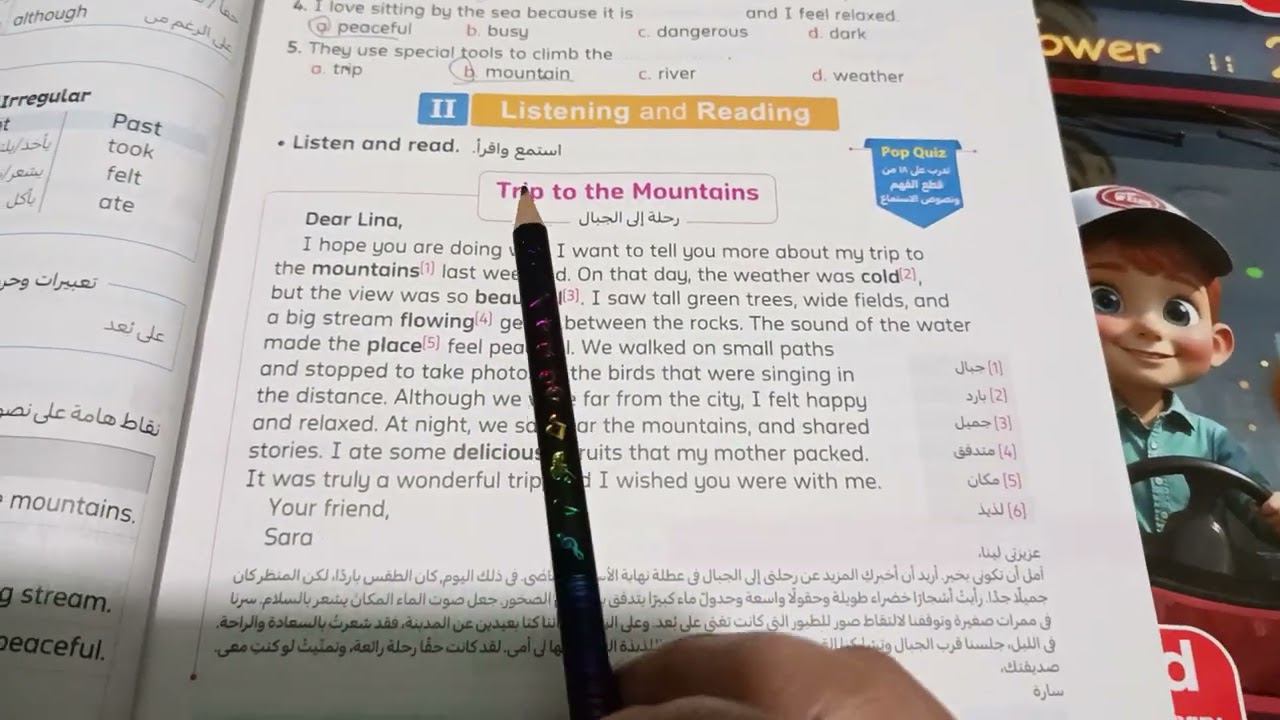 although
على الرغم من
Irregular
Past
يأخذ/يأ
took
يشعر/
felt
يأكل
ate
تعبيرات وحر
على بُعد
نقاط هامة على نصو
mountains.
g stream.
peaceful.
4. I love sitting by the sea because it is and I feel relaxed.
a. peaceful b. busy c. dangerous d. dark
5. They use special tools to climb the .
a. trip b. mountain c. river d. weather
II Listening and Reading
• Listen and read. استمع واقرأ.
Pop Quiz
تدرب على ١٨ من
قطع الفهم
ونصوص الاستماع
Trip to the Mountains
رحلة إلى الجبال
Dear Lina,
I hope you are doing I want to tell you more about my trip to
the mountains[1] last wee d. On that day, the weather was cold[2],
but the view was so beau l[3]. I saw tall green trees, wide fields, and
a big stream flowing[4] ge between the rocks. The sound of the water
made the place[5] feel pea l. We walked on small paths
and stopped to take photo the birds that were singing in
the distance. Although we far from the city, I felt happy
and relaxed. At night, we sa ar the mountains, and shared
stories. I ate some delicious ruits that my mother packed.
It was truly a wonderful trip d I wished you were with me.
Your friend,
Sara
[1] جبال
[2] بارد
[3] جميل
[4] متدفق
[5] مكان
[6] لذيذ
عزيزتي لينا،
آمل أن تكوني بخير. أريد أن أخبرك المزيد عن رحلتي إلى الجبال في عطلة نهاية الأس اضي. في ذلك اليوم، كان الطقس باردًا، لكن المنظر كان
جميلًا جدًا. رأيتُ أشجارًا خضراء طويلة وحقولًا واسعة وجدول ماء كبيرًا يتدفق الصخور. جعل صوت الماء المكان يشعر بالسلام. سرنا
في ممرات صغيرة وتوقفنا لالتقاط صور للطيور التي كانت تغني على بُعد. وعلى ال أننا كنا بعيدين عن المدينة، فقد شعرتُ بالسعادة والراحة.
في الليل، جلسنا قرب الجبال لذيذة ها لي أمي. لقد كانت حقًا رحلة رائعة، وتمنيتُ لو كنتِ معي.
صديقتك،
سارة
ower